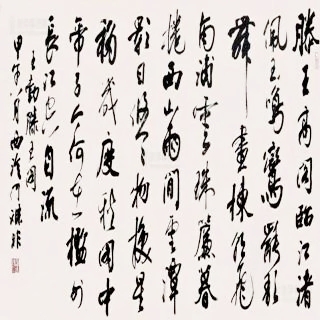 滕王高閣臨江渚
佩玉鳴鸞罷歌
舞畫棟朝飛
南浦雲珠簾暮
捲西山雨閒雲潭
影日悠々物換星
移幾度秋閣中
帝子今何在檻外
長江空自流
王勃滕王閣
甲午八月西泠